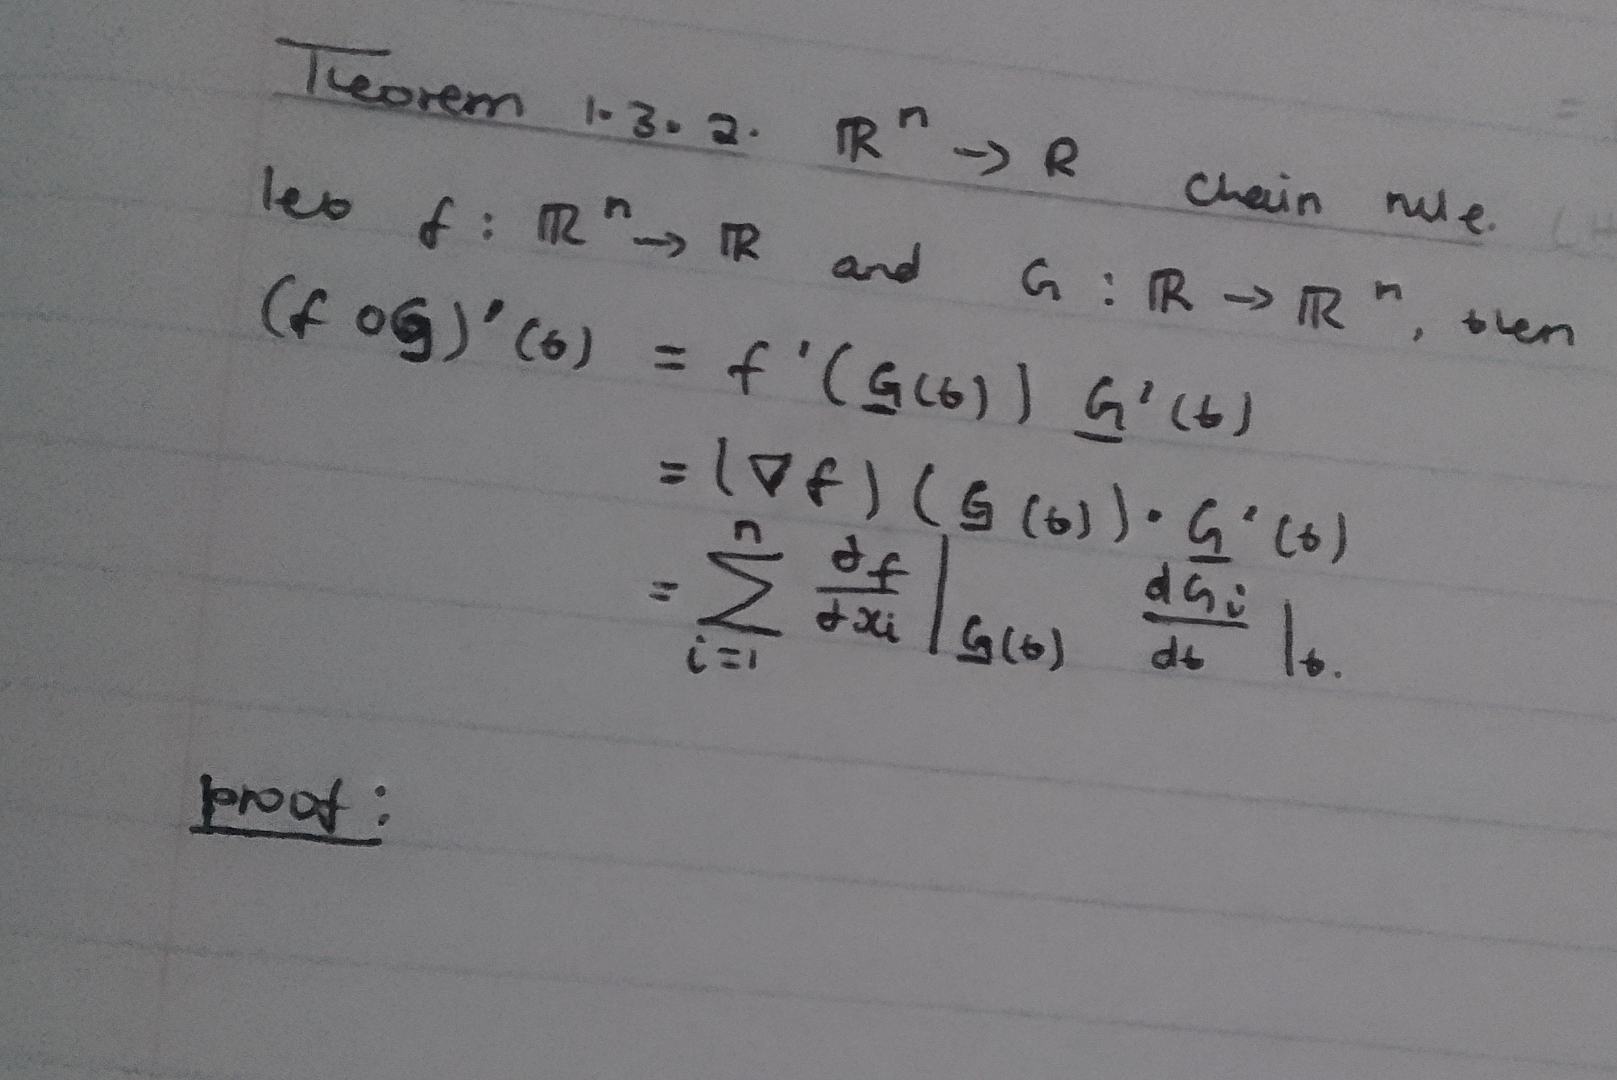 Theorem 1.3.2. ℝⁿ → R Chain rule.
let f : ℝⁿ → ℝ and G : ℝ → ℝⁿ, then
(f o G)'(t) = f'(G(t)) G'(t)
= (∇f)(G(t)) · G'(t)
= ∑ⁿᵢ₌₁ ∂f/∂xi |G(t) dGi/dt |t.
proof: